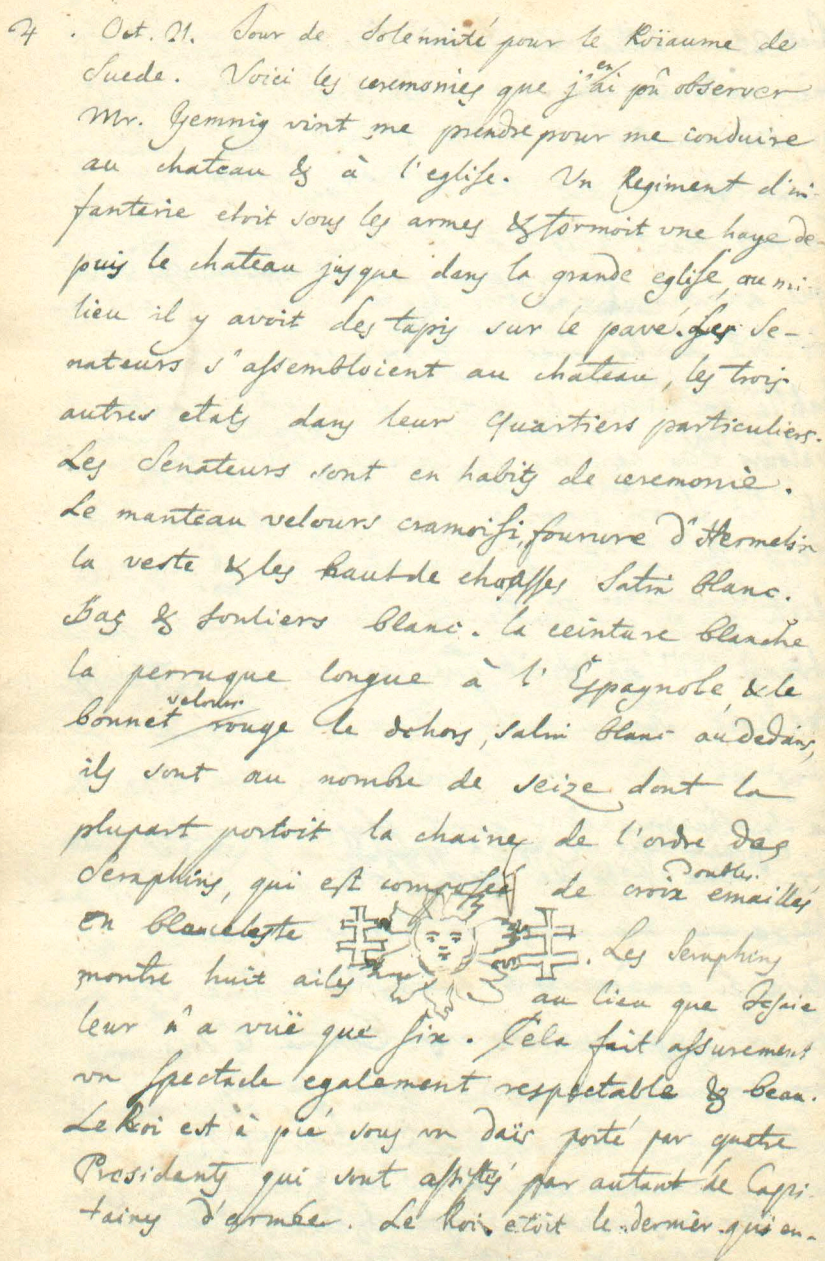 4 . Oct. 21. Jour de Solennité pour le Roïaume de
Suede. Voici les ceremonies que j'en ai pû observer
Mr. Gemnig vint me prendre pour me conduire
au chateau & à l'eglise. Un Regiment d'in-
fanterie etoit sous les armes & formoit une haye de-
puis le chateau jusque dans la grande eglise, au mi-
lieu il y avoit des tapis sur le pavé. Les Se-
nateurs s'assembloient au chateau, les trois
autres etats dans leur Quartiers particuliers.
Les Senateurs sont en habits de ceremonie.
Le manteau velours cramoisi, fourure d'Hermelin
la veste & les haut de chausses Satin blanc.
Bas & souliers blanc. la ceinture blanche
la perruque longue à l'Espagnole, & le
bonnet velours rouge le dehors, satin blanc au dedans,
ils sont au nombre de seize dont la
plupart portoit la chaine de l'ordre des
Seraphins, qui est composée de croix doubles emaillés
en bleu celeste . Les Seraphins
montre huit ailes au lieu que Jesaie
leur n'a vuë que six. Cela fait assurement
un spectacle egalement respectable & beau.
Le Roi est à pié sous un daïs porté par quatre
Presidents qui sont assistés par autant de Capi-
tains d'armée. Le Roi etoit le dernier qui en-